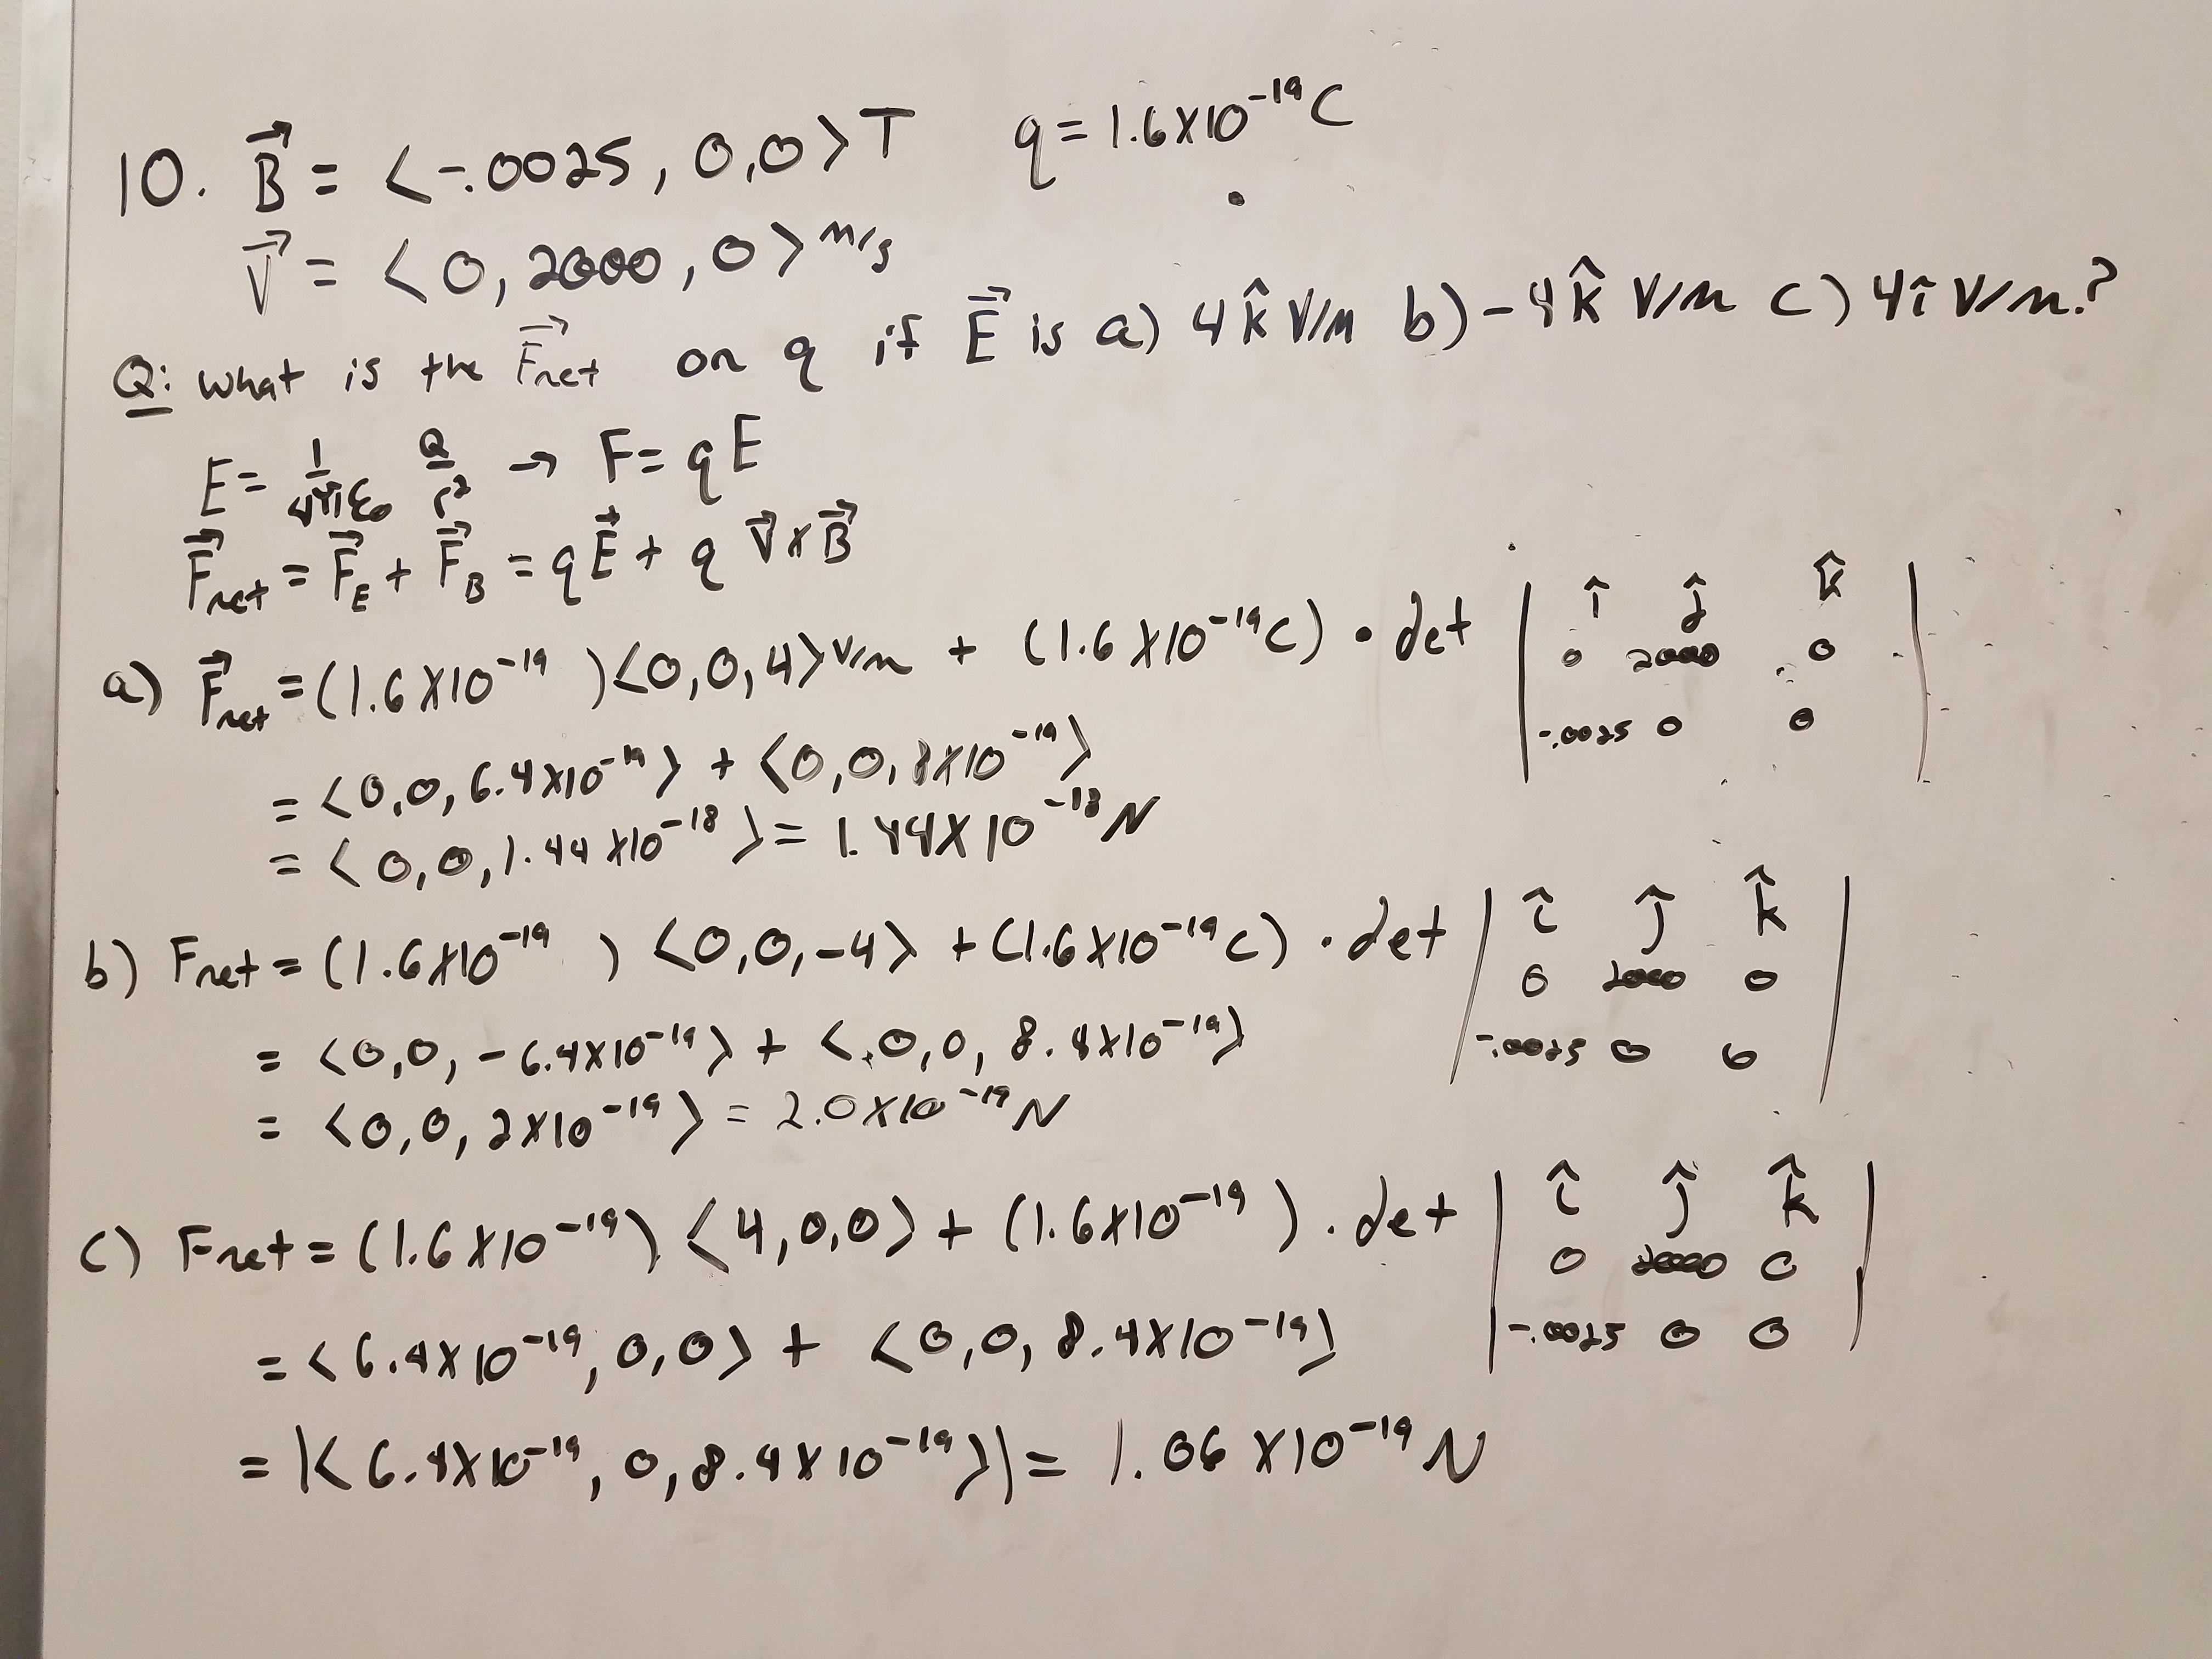 10. B⃗ = <-.0025, 0,0> T q = 1.6X10⁻¹⁹ C
V⃗ = <0, 2000, 0> m/s
Q: what is the F⃗net on q if E⃗ is a) 4k̂ V/m b) -4k̂ V/m c) 4î V/m?
E = 1/4πε₀ Q/r² → F = qE
F⃗net = F⃗E + F⃗B = qE⃗ + q V⃗ x B⃗
a) F⃗net = (1.6X10⁻¹⁹ )<0,0,4> V/m + (1.6X10⁻¹⁹C) • det | î ĵ k̂
0 2000 0
-.0025 0 0 |
= <0,0, 6.4x10⁻¹⁹> + <0,0, 8X10⁻¹⁹>
= <0,0,1.44x10⁻¹⁸> = 1.44X10⁻¹⁸ N
b) Fnet = (1.6X10⁻¹⁹ ) <0,0,-4> + (1.6X10⁻¹⁹C) • det | î ĵ k̂
0 2000 0
-.0025 0 0 |
= <0,0, -6.4X10⁻¹⁹> + <0,0, 8.4X10⁻¹⁹>
= <0,0, 2X10⁻¹⁹> = 2.0X10⁻¹⁹ N
c) Fnet = (1.6X10⁻¹⁹) <4,0,0> + (1.6X10⁻¹⁹ ) • det | î ĵ k̂
0 2000 0
-.0025 0 0 |
= <6.4X10⁻¹⁹, 0,0> + <0,0, 8.4X10⁻¹⁹>
= |<6.4X10⁻¹⁹, 0, 8.4X10⁻¹⁹>| = 1.06X10⁻¹⁹ N